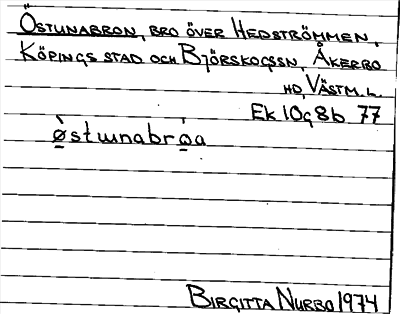 Östunabron, bro över Hedströmmen,
Köpings stad och Björskogssn, Åkerbo
hd, Västm. l.
Ek 10g8b 77
ø̠̀stɯnabrø̠̀a
Birgitta Nurbo 1974